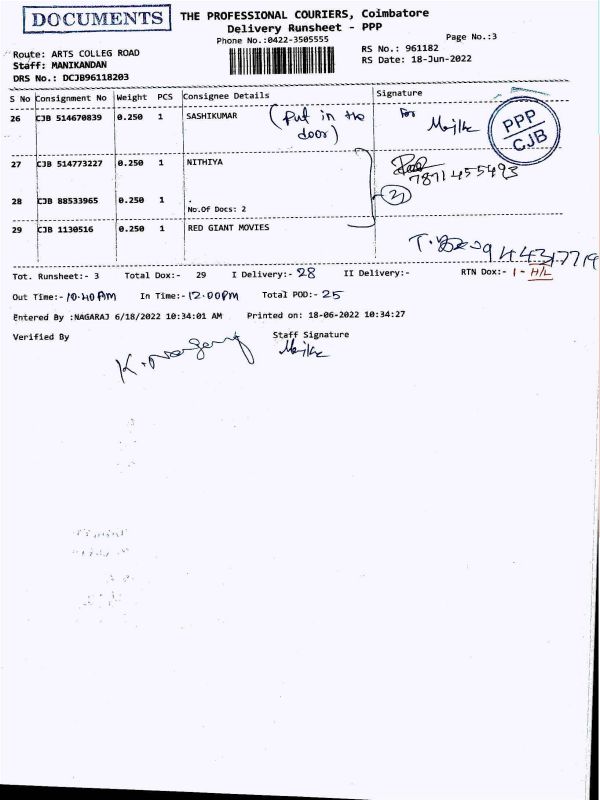 DOCUMENTS
THE PROFESSIONAL COURIERS, Coimbatore
Delivery Runsheet - PPP
Phone No.:0422-3505555
Page No.:3
Route: ARTS COLLEG ROAD
Staff: MANIKANDAN
DRS No.: DCJB96118203
RS No.: 961182
RS Date: 18-Jun-2022
S No Consignment No Weight PCS Consignee Details Signature
26 CJB 514670839 0.250 1 SASHIKUMAR (Put in the door) For
PPP
CJB
27 CJB 514773227 0.250 1 NITHIYA
7871455493
28 CJB 88533965 0.250 1 .
No.Of Docs: 2
2)
29 CJB 1130516 0.250 1 RED GIANT MOVIES
Tot. Runsheet:- 3 Total Dox:- 29 I Delivery:- 28 II Delivery:- RTN Dox:- 1 - H/L
Out Time:- 10.40 AM In Time:- 12.00PM Total POD:- 25
Entered By :NAGARAJ 6/18/2022 10:34:01 AM Printed on: 18-06-2022 10:34:27
Verified By Staff Signature